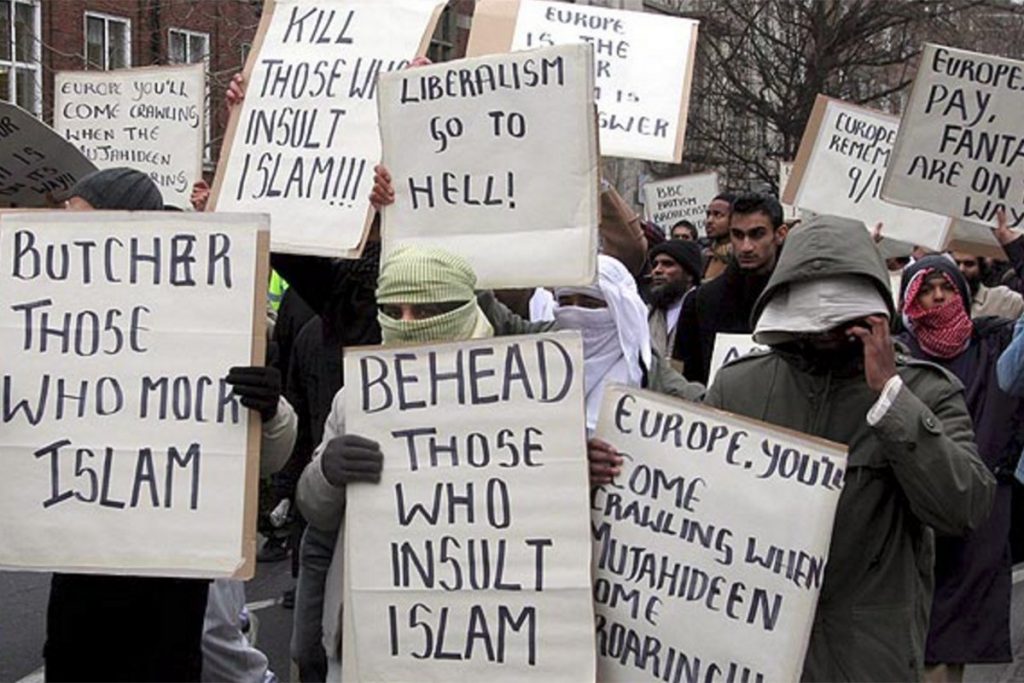 EUROPE YOU'LL
COME CRAWLING
WHEN THE
MUJAHIDEEN
KILL
THOSE WH
INSULT
ISLAM!!!
LIBERALISM
GO TO
HELL!
EUROPE
IS THE
IS
BBC
BRITISH
EUROPE
9/1
EUROPE
PAY,
FANTA
ARE ON
WAY
BUTCHER
THOSE
WHO MOCK
ISLAM
BEHEAD
THOSE
WHO
INSULT
ISLAM
EUROPE, YOU'LL
COME
CRAWLING WHEN
MUJAHIDEEN
OME
ROARING!!!